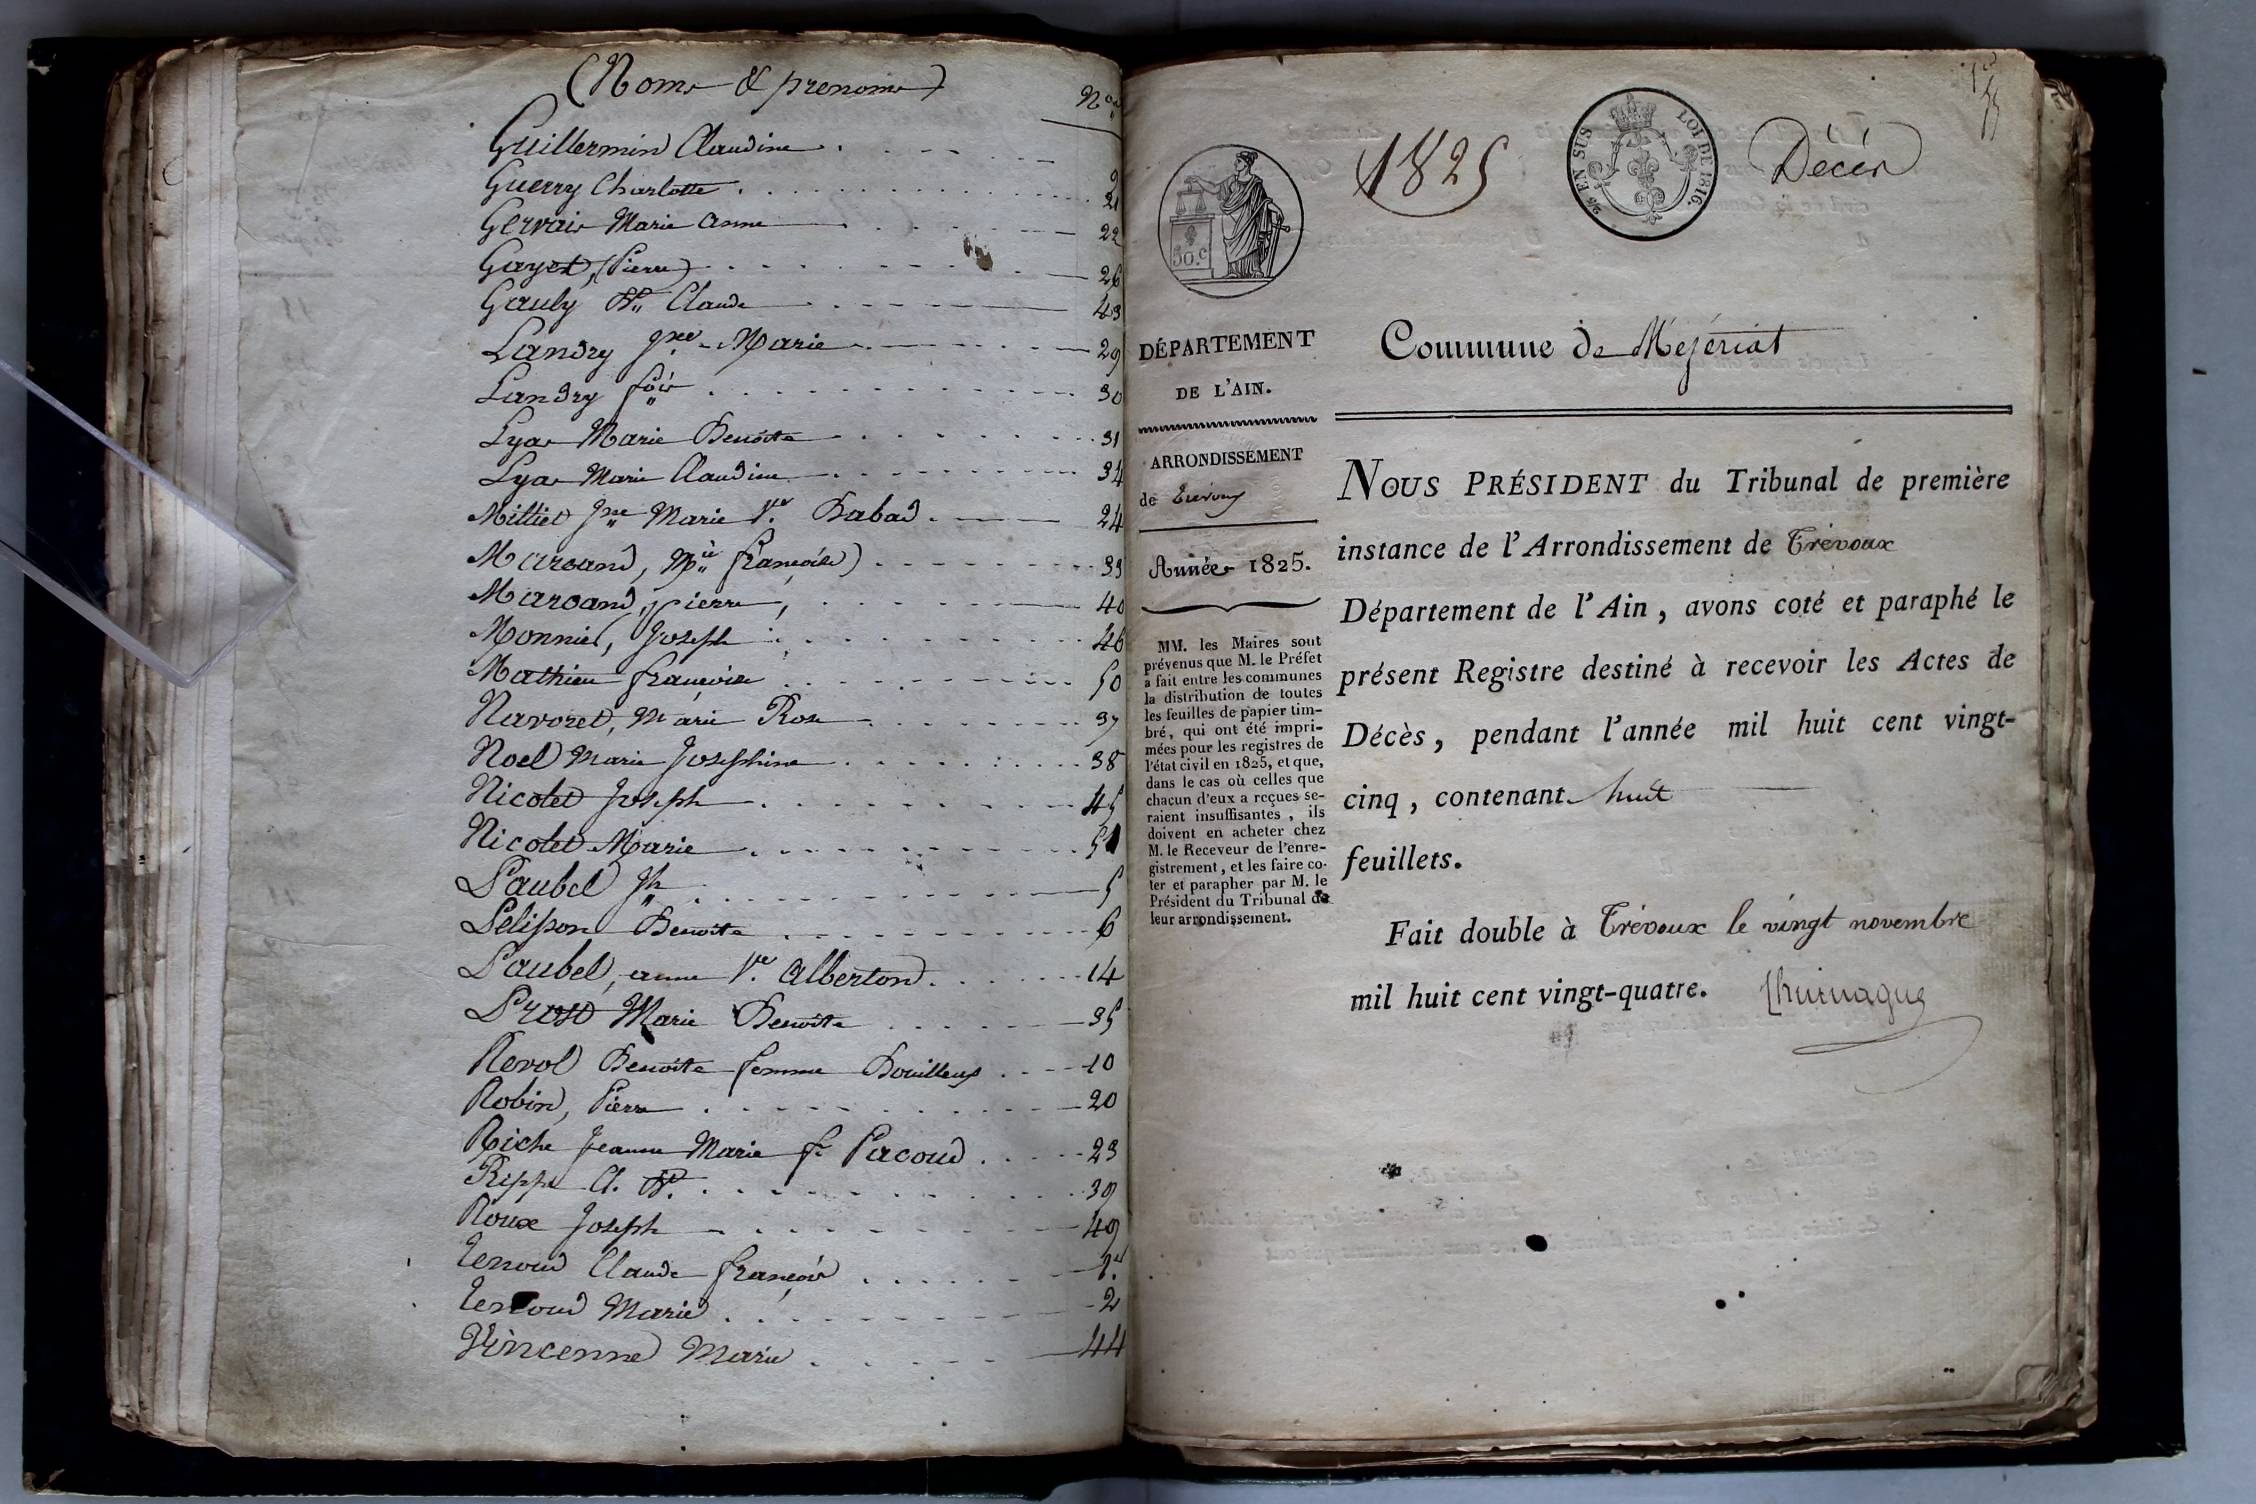 (Noms & prenoms)
Nos
Guillermin Claudine
Guerry Charlotte 21
Gervais Marie anne 22
Gayet, (Pierre) 26
Gauly Claude 43
Landry Jne Marie 29
Landry fois 30
Lyas Marie Benoite 31
Lyas Marie Claudine 34
Milliet Jne Marie Ve. Babad 24
Marvand, Mie françoise) 33
Marvand, pierre, 40
Monnier, Joseph 46
Mathieu françoise 50
Navoret, Marie Rose 37
Noel Marie Josephine 38
Nicolet Joseph 45
Nicolet Marie 51
Paubel Jh 5
Pelisson Benoite 6
Paubel, anne Ve. Alberton 14
Prost Marie Benoite 35
Revol Benoite femme Bouilloux 10
Robin, Pierre 20
Riche Jeanne Marie fe Pacoud 23
Rippe Cl. 39
Roux Joseph 49
Tenoud Claude françois 1er
Tenoud Marie 2
Vincenne Marie 44
1825
50.c
25/ EN SUS LOI DE 1816.
Décès
DÉPARTEMENT
DE L'AIN.
ARRONDISSEMENT
de Trévoux
Année 1825.
MM. les Maires sont
prévenus que M. le Préfet
a fait entre les communes
la distribution de toutes
les feuilles de papier tim-
bré, qui ont été impri-
mées pour les registres de
l'état civil en 1825, et que,
dans le cas où celles que
chacun d'eux a reçues se-
raient insuffisantes, ils
doivent en acheter chez
M. le Receveur de l'enre-
gistrement, et les faire co-
ter et parapher par M. le
Président du Tribunal de
leur arrondissement.
Commune de Mézériat
NOUS PRÉSIDENT du Tribunal de première
instance de l'Arrondissement de Trévoux
Département de l'Ain, avons coté et paraphé le
présent Registre destiné à recevoir les Actes de
Décès, pendant l'année mil huit cent vingt-
cinq, contenant huit
feuillets.
Fait double à Trévoux le vingt novembre
mil huit cent vingt-quatre.